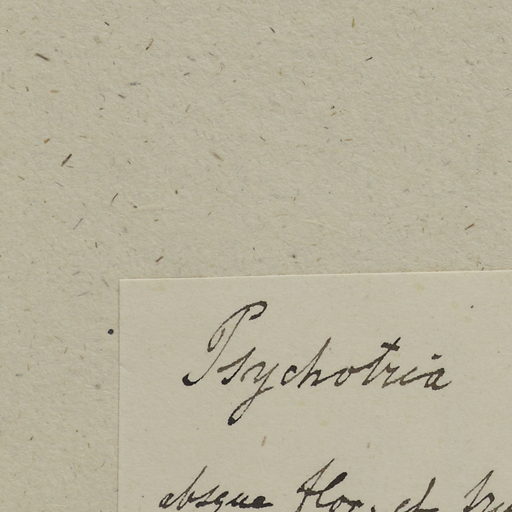 Psychotria
absque flor. et